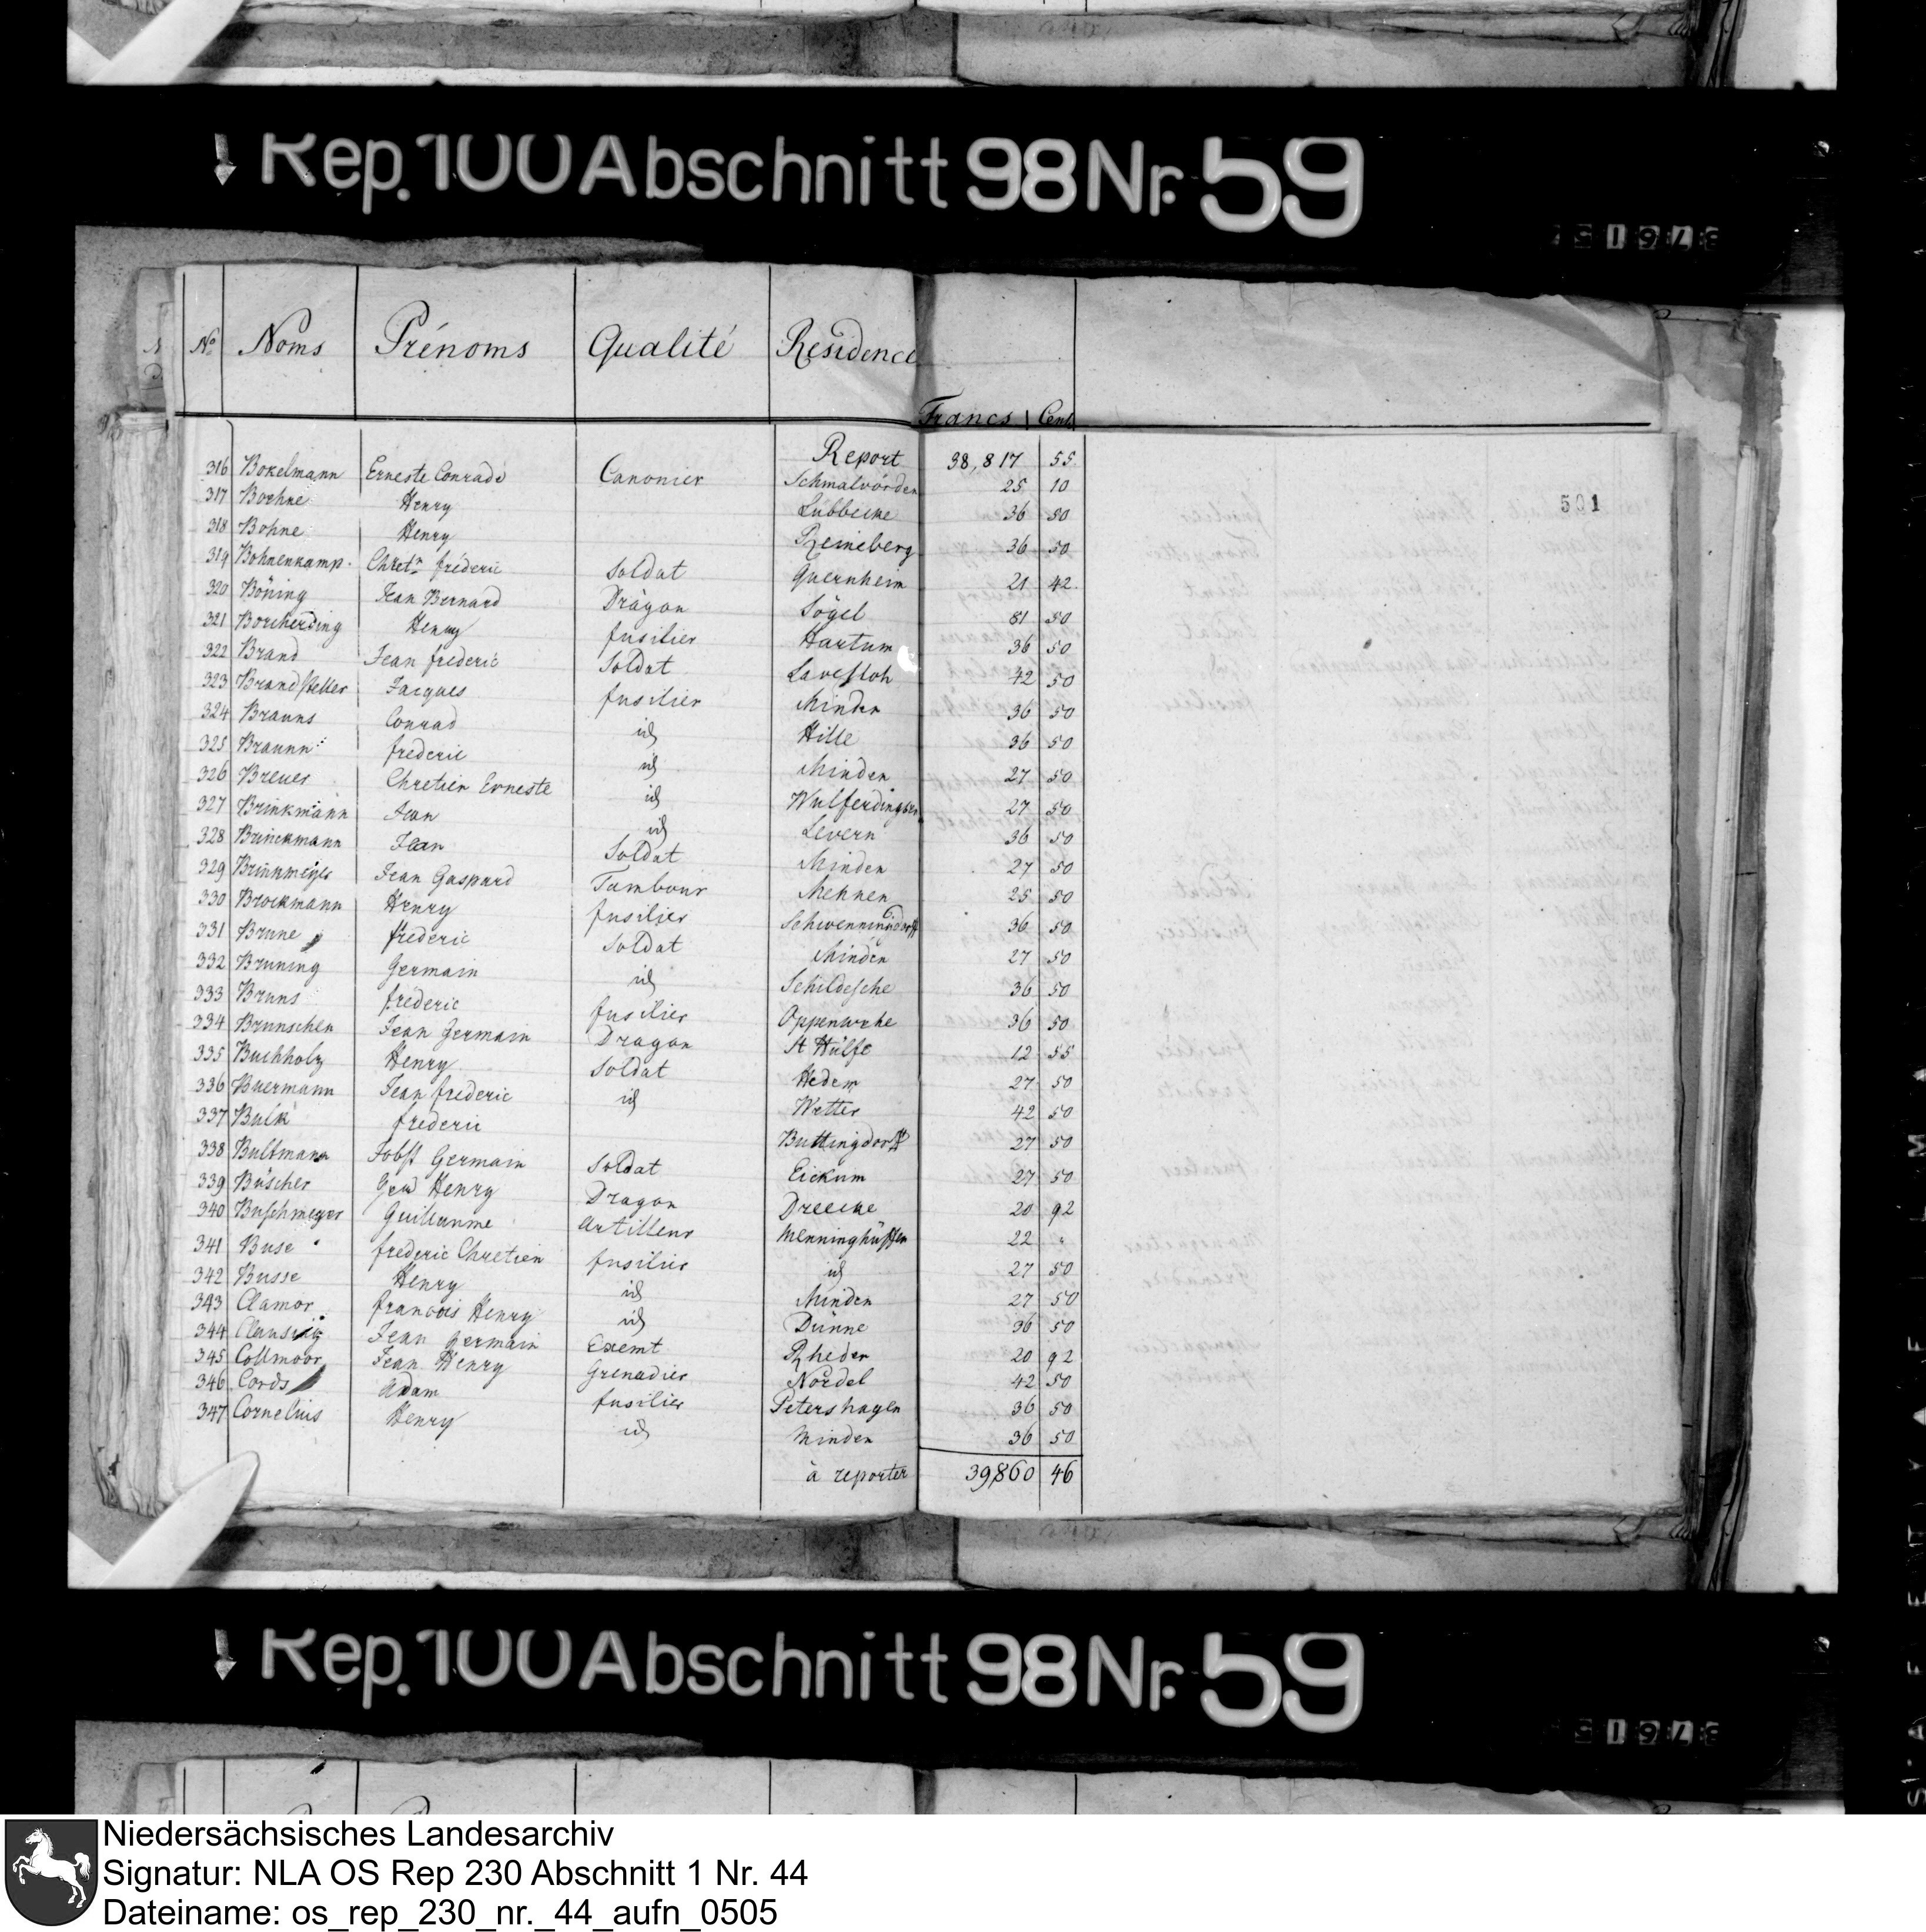 Rep. 100 Abschnitt 98 Nr. 59
No Noms Prénoms Qualité Residence
Francs Cent
Report 38,817 55
316 Bokelmann Erneste Conrade Canonier Schmalvörden 25 10
317 Boehne Henry Lübbecke 36 50
501
318 Bohne Henry Reineberg 36 50
319 Bohnenkamp Chretn frédéric Soldat Quernheim 21 42
320 Böning Jean Bernard Dragon Sögel 81 50
321 Borcherding Henry fusilier Hartum 36 50
322 Brand Jean frederic Soldat Lavesloh 42 50
323 Brandsteller Jacques fusilier Minden 36 50
324 Brauns Conrad id Hille 36 50
325 Braunn frederic id Minden 27 50
326 Breuer Chretien Erneste id Wulferdingsen 27 50
327 Brinkmann Jean id Levern 36 50
328 Brinckmann Jean Soldat Minden 27 50
329 Brinkmeyer Jean Gaspard Tambour Mehnen 25 50
330 Brockmann Henry fusilier Schwenningdorff 36 50
331 Brune frederic Soldat Minden 27 50
332 Bruning Germain id Schildesche 36 50
333 Bruns fréderic fusilier Oppenwehe 36 50
334 Brunschen Jean Germain Dragon St Hülfe 12 55
335 Buchholz Henry Soldat Hedem 27 50
336 Buermann Jean frederic id Wetter 42 50
337 Bulk frederic Buttingdorff 27 50
338 Bultmann Jobst Germain Soldat Eickum 27 50
339 Büscher Henry Dragon Dreecke 20 92
340 Buschmeyer Guillaume Artilleur Menninghüffen 22 "
341 Buse frederic Chretien fusilier id 27 50
342 Busse Henry id Minden 27 50
343 Clamor francois Henry id Dünne 36 50
344 Clausing Jean Germain Exemt Rheden 20 92
345 Collmoor Jean Henry Grenadier Nordel 42 50
346 Cords Adam fusilier Petershagen 36 50
347 Cornelius Henry id Minden 36 50
à reporter 39,860 46
Rep. 100 Abschnitt 98 Nr. 59
Niedersächsisches Landesarchiv
Signatur: NLA OS Rep 230 Abschnitt 1 Nr. 44
Dateiname: os_rep_230_nr._44_aufn_0505